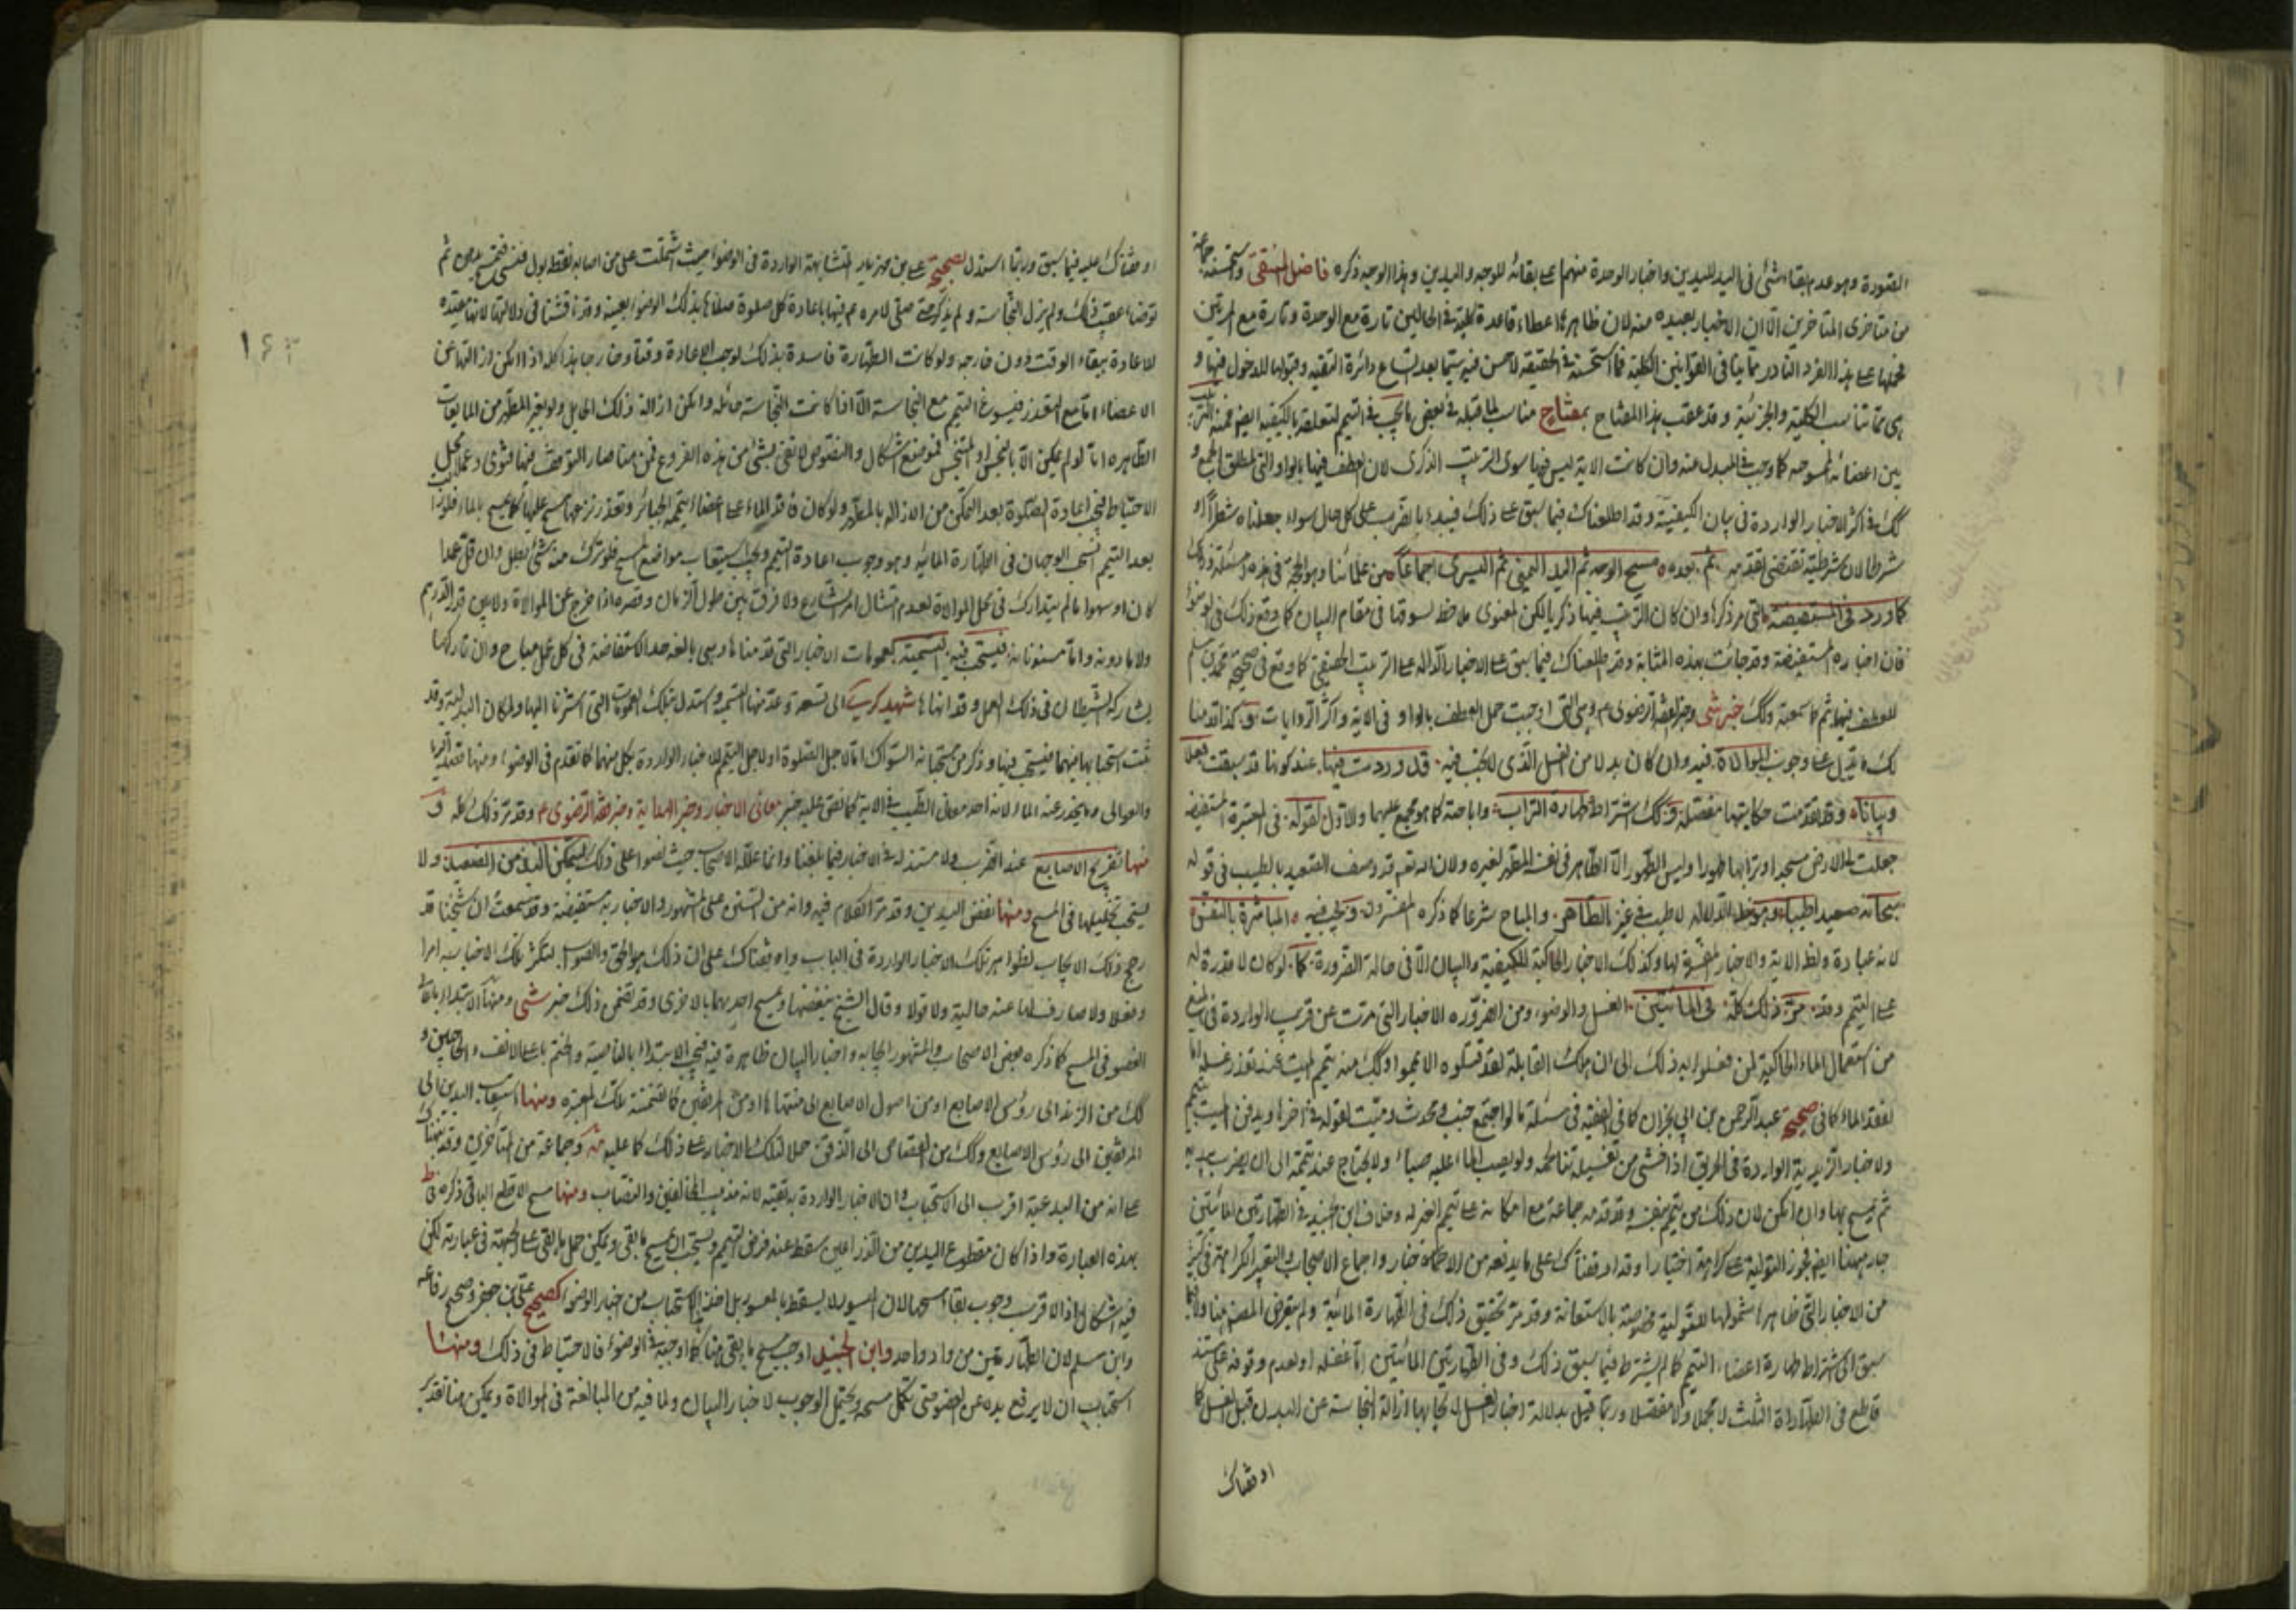 المقصودة وهو عدم بقاء شئ فى اليد لليدين واخبار الوحدة منهم على بقائه للوجه واليدين وهذا الوجه ذكره فاضل المنتقى واستحسنه جماعة
من متأخرى المتأخرين الا ان الاخبار بعيده منه لان ظاهرها اعطاء قاعدة كلية فى الحالين تارة مع الوحدة وتارة مع المرتين
فحملها على هذا الفرد النادر مما ينافى القوانين الكلية فما استحسنه فى الحقيقة لا حسن فيه سيما بعد اتساع دائرة التقيه وقبولها للدخول فيها و
هى مما تناسب الكلية والجزئية وقد عقب هذا المفتاح بمفتاح مناسب لما قبله فى بعض ما يجب فى التيمم لتعلقه بالكيفيه ايضا فمنه الترتيب
بين اعضائه الممسوحه كما وجب فى المبدل منه وان كانت الاية ليس فيها سوى الترتيب الذكرى لان العطف فيها بالواو التى لمطلق الجمع و
كك فى اكثر الاخبار الواردة فى بيان الكيفية وقد اطلعناك فيما سبق على ذلك فيبدء بالضرب على كل حال سواء جعلناه شطرا او
شرطا لان شرطيته تقتضى تقدمه ثم بعده مسح الوجه ثم اليد اليمنى ثم اليسرى اجماعا من علمائنا وهو الحجة فى هذه المسئلة وذلك
كما ورد فى المستفيضة التى مر ذكرها وان كان الترتيب فيها ذكريا لكن المعنوى ملاحظ لسوقها فى مقام البيان كما وقع ذلك فى الوضوء
فان اخباره المستفيضة وقد جائت بهذه المثابة وقد اطلعناك فيما سبق على الاخبار الدالة على الترتيب الحقيقى كما وقع فى صحيحة محمد بن مسلم
للعطف فيها ثم كما سمعته وكك خبر شى وخبر الفقه الرضوى ع وهى التى اوجبت حمل العطف بالواو فى الاية واكثر الروايات و كذا قدمنا
لك ما يدل على وجوب الموالاة فيه وان كان بدلا من الغسل الذى لا تجب فيه قد وردت فيها عند كونها قد سبقت فعلا
وبيانا وقد تقدمت حكايتها مفصلة وكك اشتراط طهارة التراب واباحته كما هو مجمع عليهما والاول لقوله فى المعتبرة المستفيضه
جعلت لى الارض مسجدا وترابها طهورا وليس الطهور الا الطاهر فى نفسه المطهر لغيره ولان الله تعم قد وصف الصعيد بالطيب فى قوله
سبحانه صعيدا طيبا وهو ظاهر الدلالة لا طيب فى غير الطاهر والمباح شرعا كما ذكره المفسرون ويجب فيه المباشرة بالنفس
لانه عبادة ولظ الاية والاخبار المفسرة لها وكذلك الاخبار الحاكية للكيفية والبيان الا فى حالة الضرورة كما لو كان لا قدرة له
على التيمم وقد مر ذلك كله فى المائيتين الغسل والوضوء ومن الضرورة الاخبار التى مرت عن قريب الواردة فى المنع
من استعمال الماء الحاكية لمن فعلوا به ذلك الى ان هلك القابلة لقد قتلوه الا يمموا وكك منه تيمم الميت عند تعذر غسله اما
لفقد الماء كما فى صحيح عبد الرحمن بن ابى نجران كما فى الفقيه فى مسئلة ما لو اجتمع جنب ومحدث وميت لقوله فى اخرها ويدفن الميت بتيمم
ولاخبار الزيدية الواردة فى الحريق اذا خشى من تغسيله تناثر لحمه ولو يصب الماء عليه صبا ولا يحتاج عند تيممه الى ان يضرب بيديه
ثم يمسح بها وان امكن لان ذلك من يتيمم بنفسه وقد قدمه جماعة مع امكانه على تيمم الغير له وخلاف ابن الجنيد فى الطهارتين المائيتين
جار ههنا ايضا فجوز التولية على كراهة اختيارا وقد اوقفناك على ما يدفعه من الاخبار واجماع الاصحاب
من الاخبار التى ظاهرها شمولها للتولية مخصوصة بالاستعانة وقد مر تحقيق ذلك فى الطهارة المائية ولم يتعرض المصنف هنا ولا فيما
سبق الى اشتراط طهارة اعضاء التيمم كما لم يشترط فيما سبق ذلك وفى الطهارتين المائيتين اما غفله او لعدم وقوفه على مستند
قاطع فى الطهارات الثلث لا مجملا ولا مفصلا وربما قيل بدلالة اخبار الغسل لايجابها ازالة النجاسة عن البدن قبل الغسل كما
اوقفناك
١٦٣
اوقفناك عليه فيما سبق وربما استدل بصحيح على بن مهزيار المتشابهة الواردة فى الوضوء حيث اشتملت على من اصابه نقطة بول فنسى فتمسح بدهن ثم
توضأ عقيب ذلك ولم يزل النجاسة ولم يذكر حتى صلى لامره ع فيها باعادة كل صلوة صلاها بذلك الوضوء بعينه وقد ناقشنا فى دلالتها لانها مقيده
للاعادة ببقاء الوقت دون خارجه ولو كانت الطهارة فاسدة بذلك لوجب الاعادة وقتا وخارجا هذا كله اذا امكن ازالتها عن
الاعضاء اما مع التعذر فيسوغ التيمم مع النجاسة الا اذا كانت النجاسة حائله وامكن ازالة ذلك الحايل ولو بغير المطهر من المايعات
الطاهره اما لو لم يكن الا بالنجس او المتنجس فموضع اشكال والنصوص لا تفى بشئ من هذه الفروع فمن هنا صار التوقف فيها فتوى وعملا محل
الاحتياط فيجب اعادة الصلوة بعد التمكن من الازالة بالمطهر ولو كان فاقد الماء على اعضاء تيممه الجبائر وتعذر نزعها مسح عليها كما يمسح بالماء فلو زال
بعد التيمم انسحب الوجهان فى الطهارة المائيه وهو وجوب اعادة التيمم ويجب استيعاب مواضع المسح فلو ترك منه شئ بطل وان قل عمدا
كان او سهوا ما لم يتداركه فى محل الموالاة لعدم امتثال امر الشارع ولا فرق بين طول الزمان وقصره اذا خرج عن الموالاة ولا بين قدر الدرهم
ولا ما دونه واما مسنوناته فيستحب فيه التسمية لعمومات الاخبار التى قدمناها وهى بالغه حد الاستفاضة فى كل عمل مباح وان تاركها
يشاركه الشيطان فى ذلك العمل وقد انهاها شهيد كرى الى تسعة وعد منها التسمية واستدل بتلك العمومات التى اشرنا اليها ولمكان البدلية وقد
ثبت استحبابها فيهما فيستحب فيها وذكر من مستحباته السواك اما لاجل الصلوة او لاجل التيمم للاخبار الواردة بكل منهما كما تقدم فى الوضوء ومنها قصد الربا
والعوالى وما ينحدر عنه الماء لانه احد معانى الطيب فى الاية كما نص عليه خبر معانى الاخبار وخبر الهداية وخبر فقه الرضوى ع وقد مر ذلك كله و
منها تفريج الاصابع عند الضرب ولا مستند له فى الاخبار فيما بلغنا وانما علله الاصحاب حيث نصوا على ذلك ليتمكن اليد من الصعيد ولا
يستحب تخليلها فى المسح ومنها نفض اليدين وقد مر الكلام فيه وانه من السنن على المشهور والاخبار به مستفيضة وقد سمعت ان شيخنا قد
رجح ذلك الايجاب لظواهر تلك الاخبار الواردة فى الباب واوقفناك على ان ذلك هو الحق والصواب لتكثر تلك الاخبار به امرا
وفعلا ولا صارف لها عنه حالية ولا قولا وقال الشيخ ينفضهما ويمسح احديهما بالاخرى وقد تضمن ذلك خبر شى ومنها الابتداء باعلى
العضو فى المسح كما ذكره بعض الاصحاب والمشهور ايجابه واخبار البيان ظاهرة فيه فيجب الابتداء بالناصية والختم باعلى الانف والحاجبين و
كك من الزند الى رؤس الاصابع او من اصول الاصابع الى منتهاها او من المرفقين كما تضمنته تلك المعتبره ومنها استيعاب اليدين الى
المرفقين الى رؤس الاصابع وكك من القصاص الى الذقن حملا لتلك الاخبار على ذلك كما عليه وجماعة من المتأخرين وقد بينا
على انه من البدعية اقرب الى الاستحباب وان الاخبار الواردة به تقيه لانه مذهب المخالفين والنصاب ومنها مسح الاقطع الباقى ذكره
بهذه العبارة واذا كان مقطوع اليدين من الذراعين سقط عنه فرض التيمم ويستحب ان يمسح ما بقى ويمكن حمل ما بقى على الجبهة فى عبارته لكن
فيه اشكال اذ الاقرب وجوب بقاء مسحها لان الميسور لا يسقط بالمعسور بل اخذ الاستحباب من اخبار الوضوء كصحيح على بن جعفر وصحيح رفاعه
وابن مسلم لان الطهارتين من واد واحد وابن الجنيد اوجب مسح ما بقى هنا كما اوجبه فى الوضوء فالاحتياط فى ذلك ومنها
استحباب ان لا يرفع يده عن العضو حتى يكمل مسحه ويحتمل الوجوب لاخبار البيان ولما فيه من المبالغة فى الموالاة ويمكن هنا تقدير